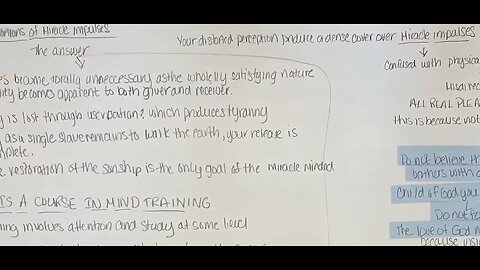 of Miracle Impulses
The answer
become totally unneccessary as the wholly satisfying nature
becomes apparent to both giver and receiver.
is lost through usurpation which produces tyranny
as a single slave remains to walk the earth, your release is
restoration of the sonship is the only goal of the miracle minded
IS A COURSE IN MIND TRAINING
involves attention and study at some level
Your distorted perception produce a dense cover over Miracle impulses
Confused with physical
ALL REAL
this is because not
Do not believe th
Child of God you
Do not
The love of God
because